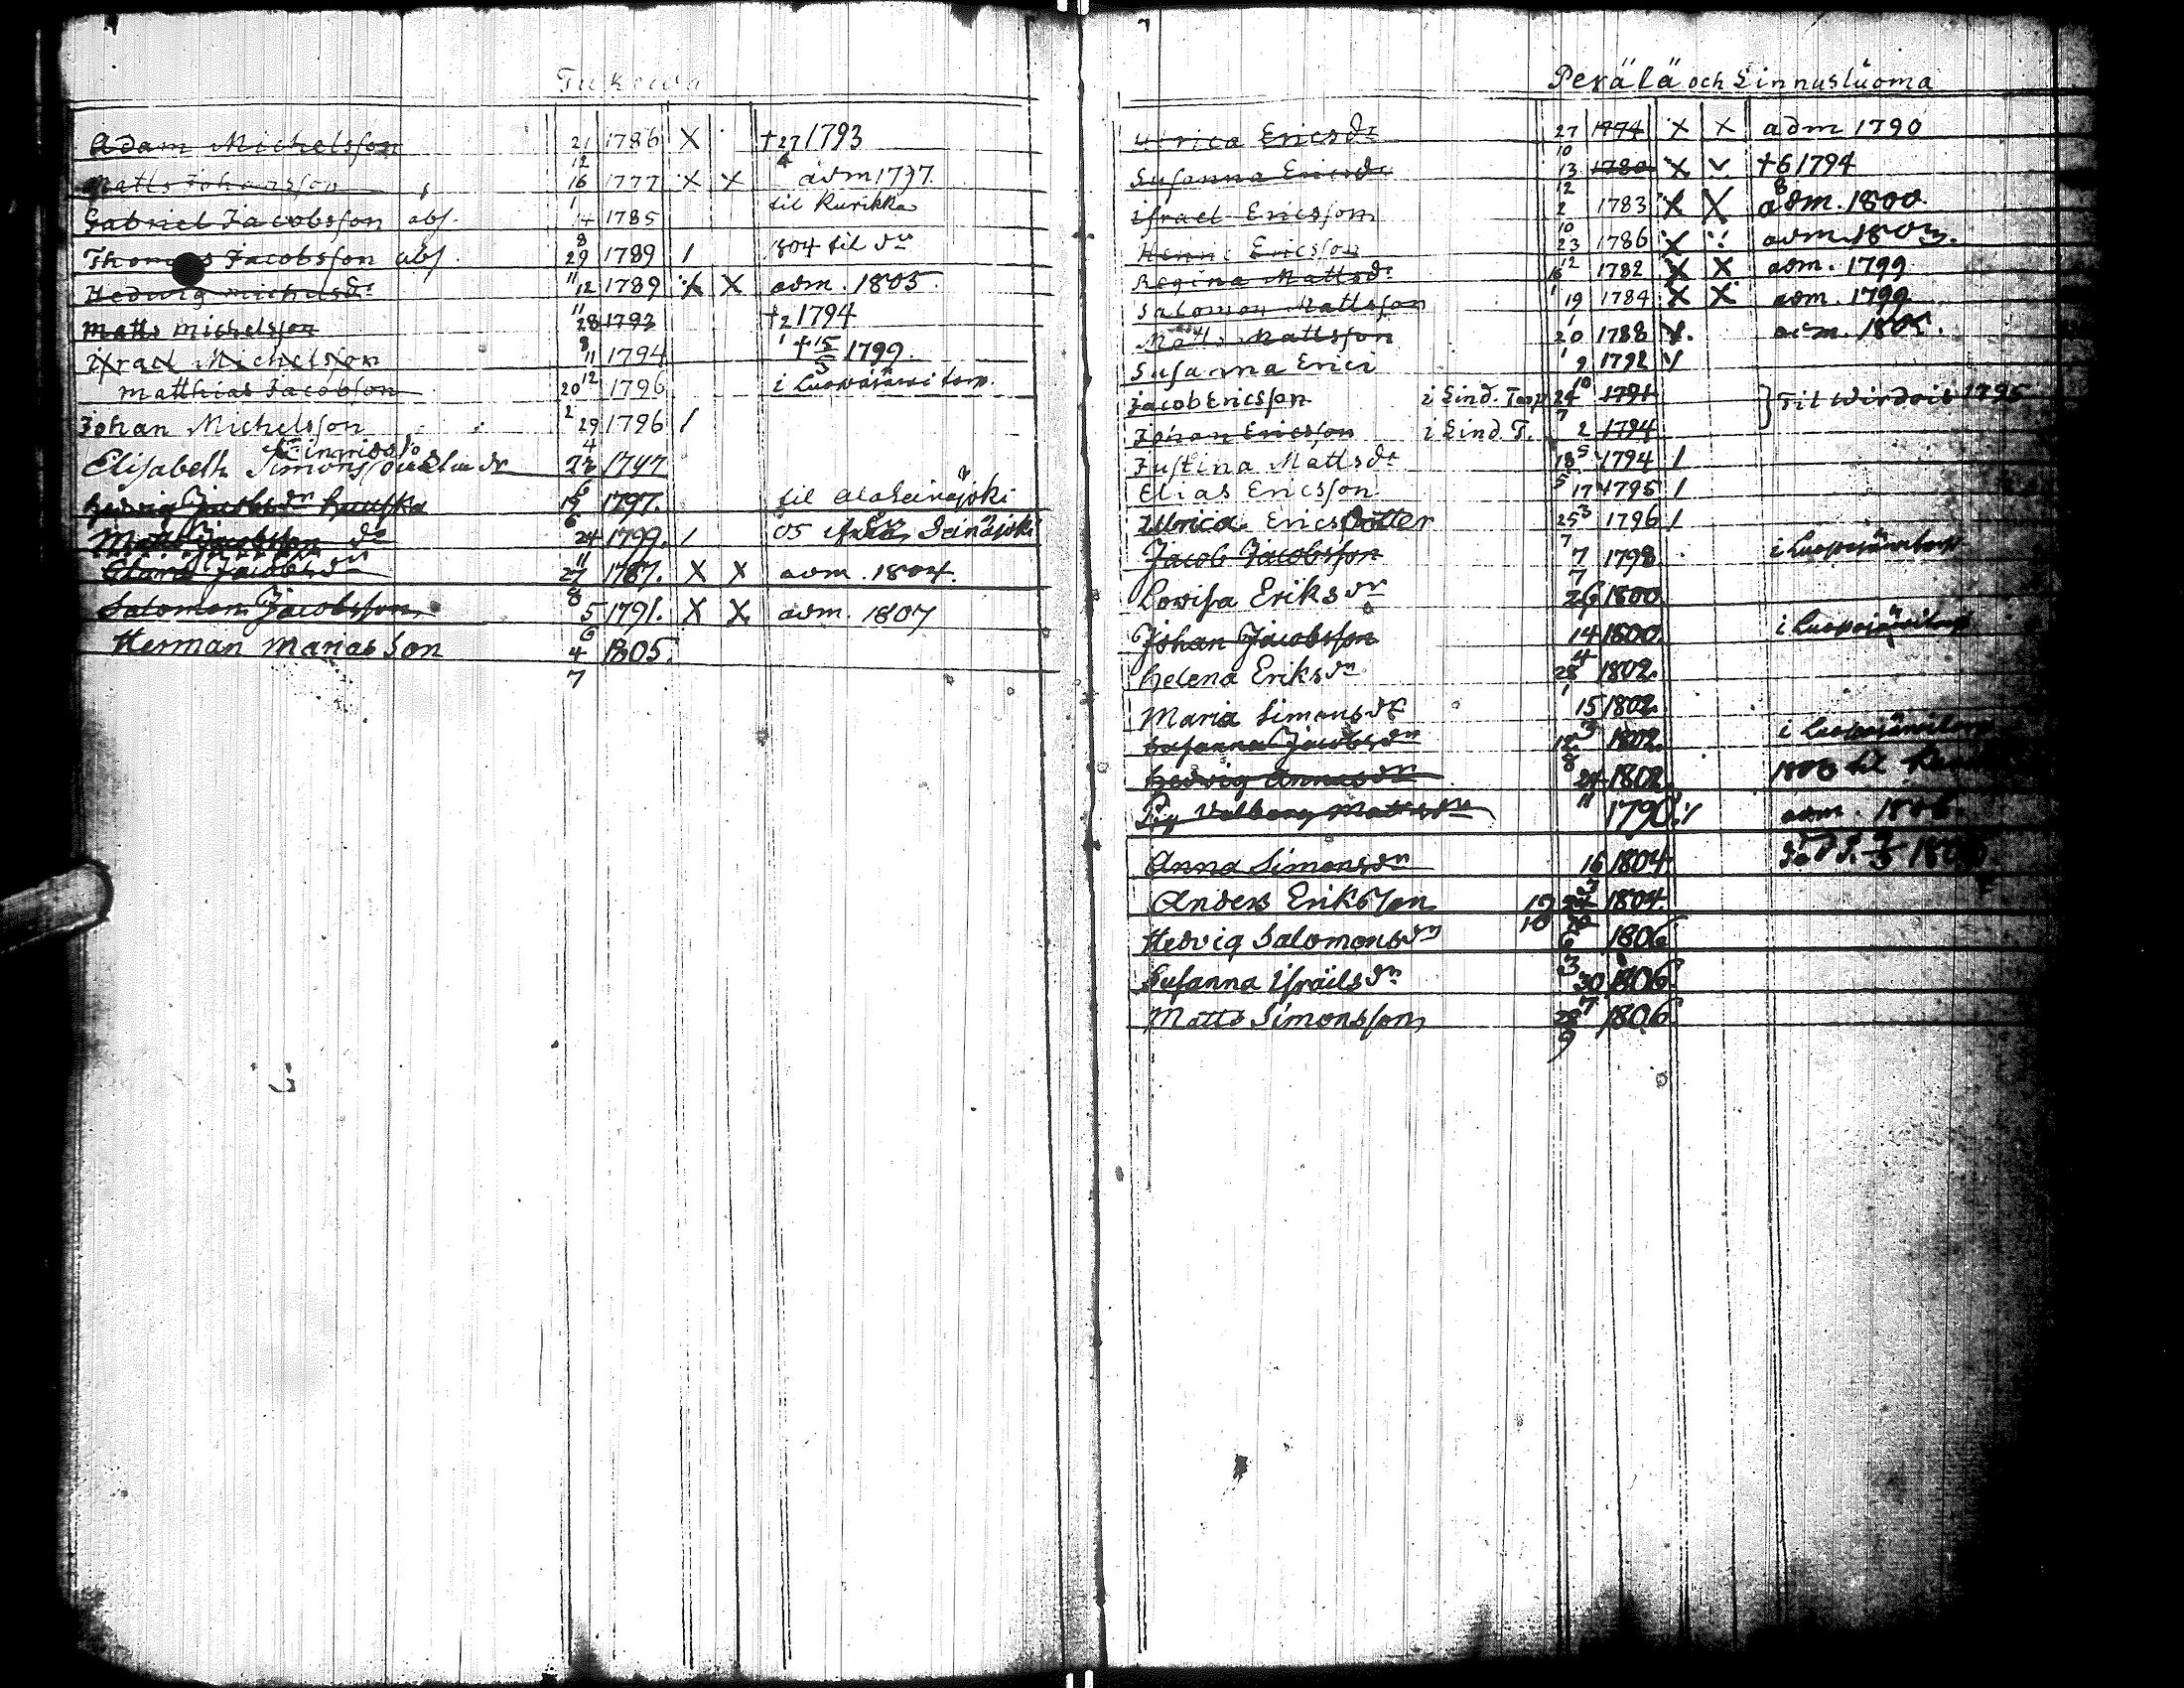 Adam Michelsson 21/12 1786 X †27/4 1793
Matts Johansson 16/1 1777 X X adm 1797.
Gabriel Jacobsson abs. 14/8 1785 til Kurikka
Thomas Jacobsson abs. 29/11 1789 / 1804 til do
Hedwig Michelsdr 12/11 1789 X X adm. 1805.
Matts Michelsson 28/8 1793 †2/1 1794
Israel Michelsson 11/12 1794 †15/5 1799.
Matthias Jacobsson 20/2 1796 i Luopajärwi torp.
Johan Michelsson 29/4 1796 /
Elisabeth Simons 1797
Hedvig Jacobsdr 15/6 1797. til Alaseinäjoki
Matts Jacobsson 24/11 1799. / 05 Seinäjoki
Clara Jacobsdr 27/8 1787. X X adm. 1804.
Salomon Jacobsson 5/6 1791. X X adm. 1807
Herman Marias Son 4/7 1805.
Perälä och Linnusluoma
Ulrica Ericsdr 27/10 1774 X X adm 1790
Susanna Ericsdr 13/12 1780 X †6/8 1794
Israel Ericsson 2/10 1783 X X adm. 1800.
Henric Ericsson 23/12 1786 X adm. 1803.
Regina Mattsdr 16/1 1782 X X adm. 1799
Salomon Mattsson 19 1784 X X adm. 1799
Matts Mattsson 20/1 1788 adm.
Susanna Erici 9/10 1792
Jacob Ericsson i Lind. Torp 24/7 1791 } Til Wirdois 1795
Johan Ericsson i Lind. T. 2 1794
Justina Mattsdr 18/5 1794 /
Elias Ericsson 17 1795 /
Ulrica Ericsdotter 25/7 1796 /
Jacob Jacobsson 7/7 1798. i Luopajärwi torp
Lovisa Eriksdr 26 1800.
Johan Jacobsson 14/4 1800. i Luopajärwi torp
Helena Eriksdr 28/1 1802.
Maria Simonsdr 15/3 1802.
Susanna Jacobsdr 12/8 1802. i Luopajärwi torp
Hedvig Annasdr 24/11 1802. til
Pig. Valborg Mattsdr 1790. adm. 1806.
Anna Simonsdr 16/3 1804.
Anders Eriksson 19/10 1804.
Hedvig Salomonsdr 6/3 1806
Susanna Israelsdr 30/7 1806.
Matts Simonsson 28/9 1806.